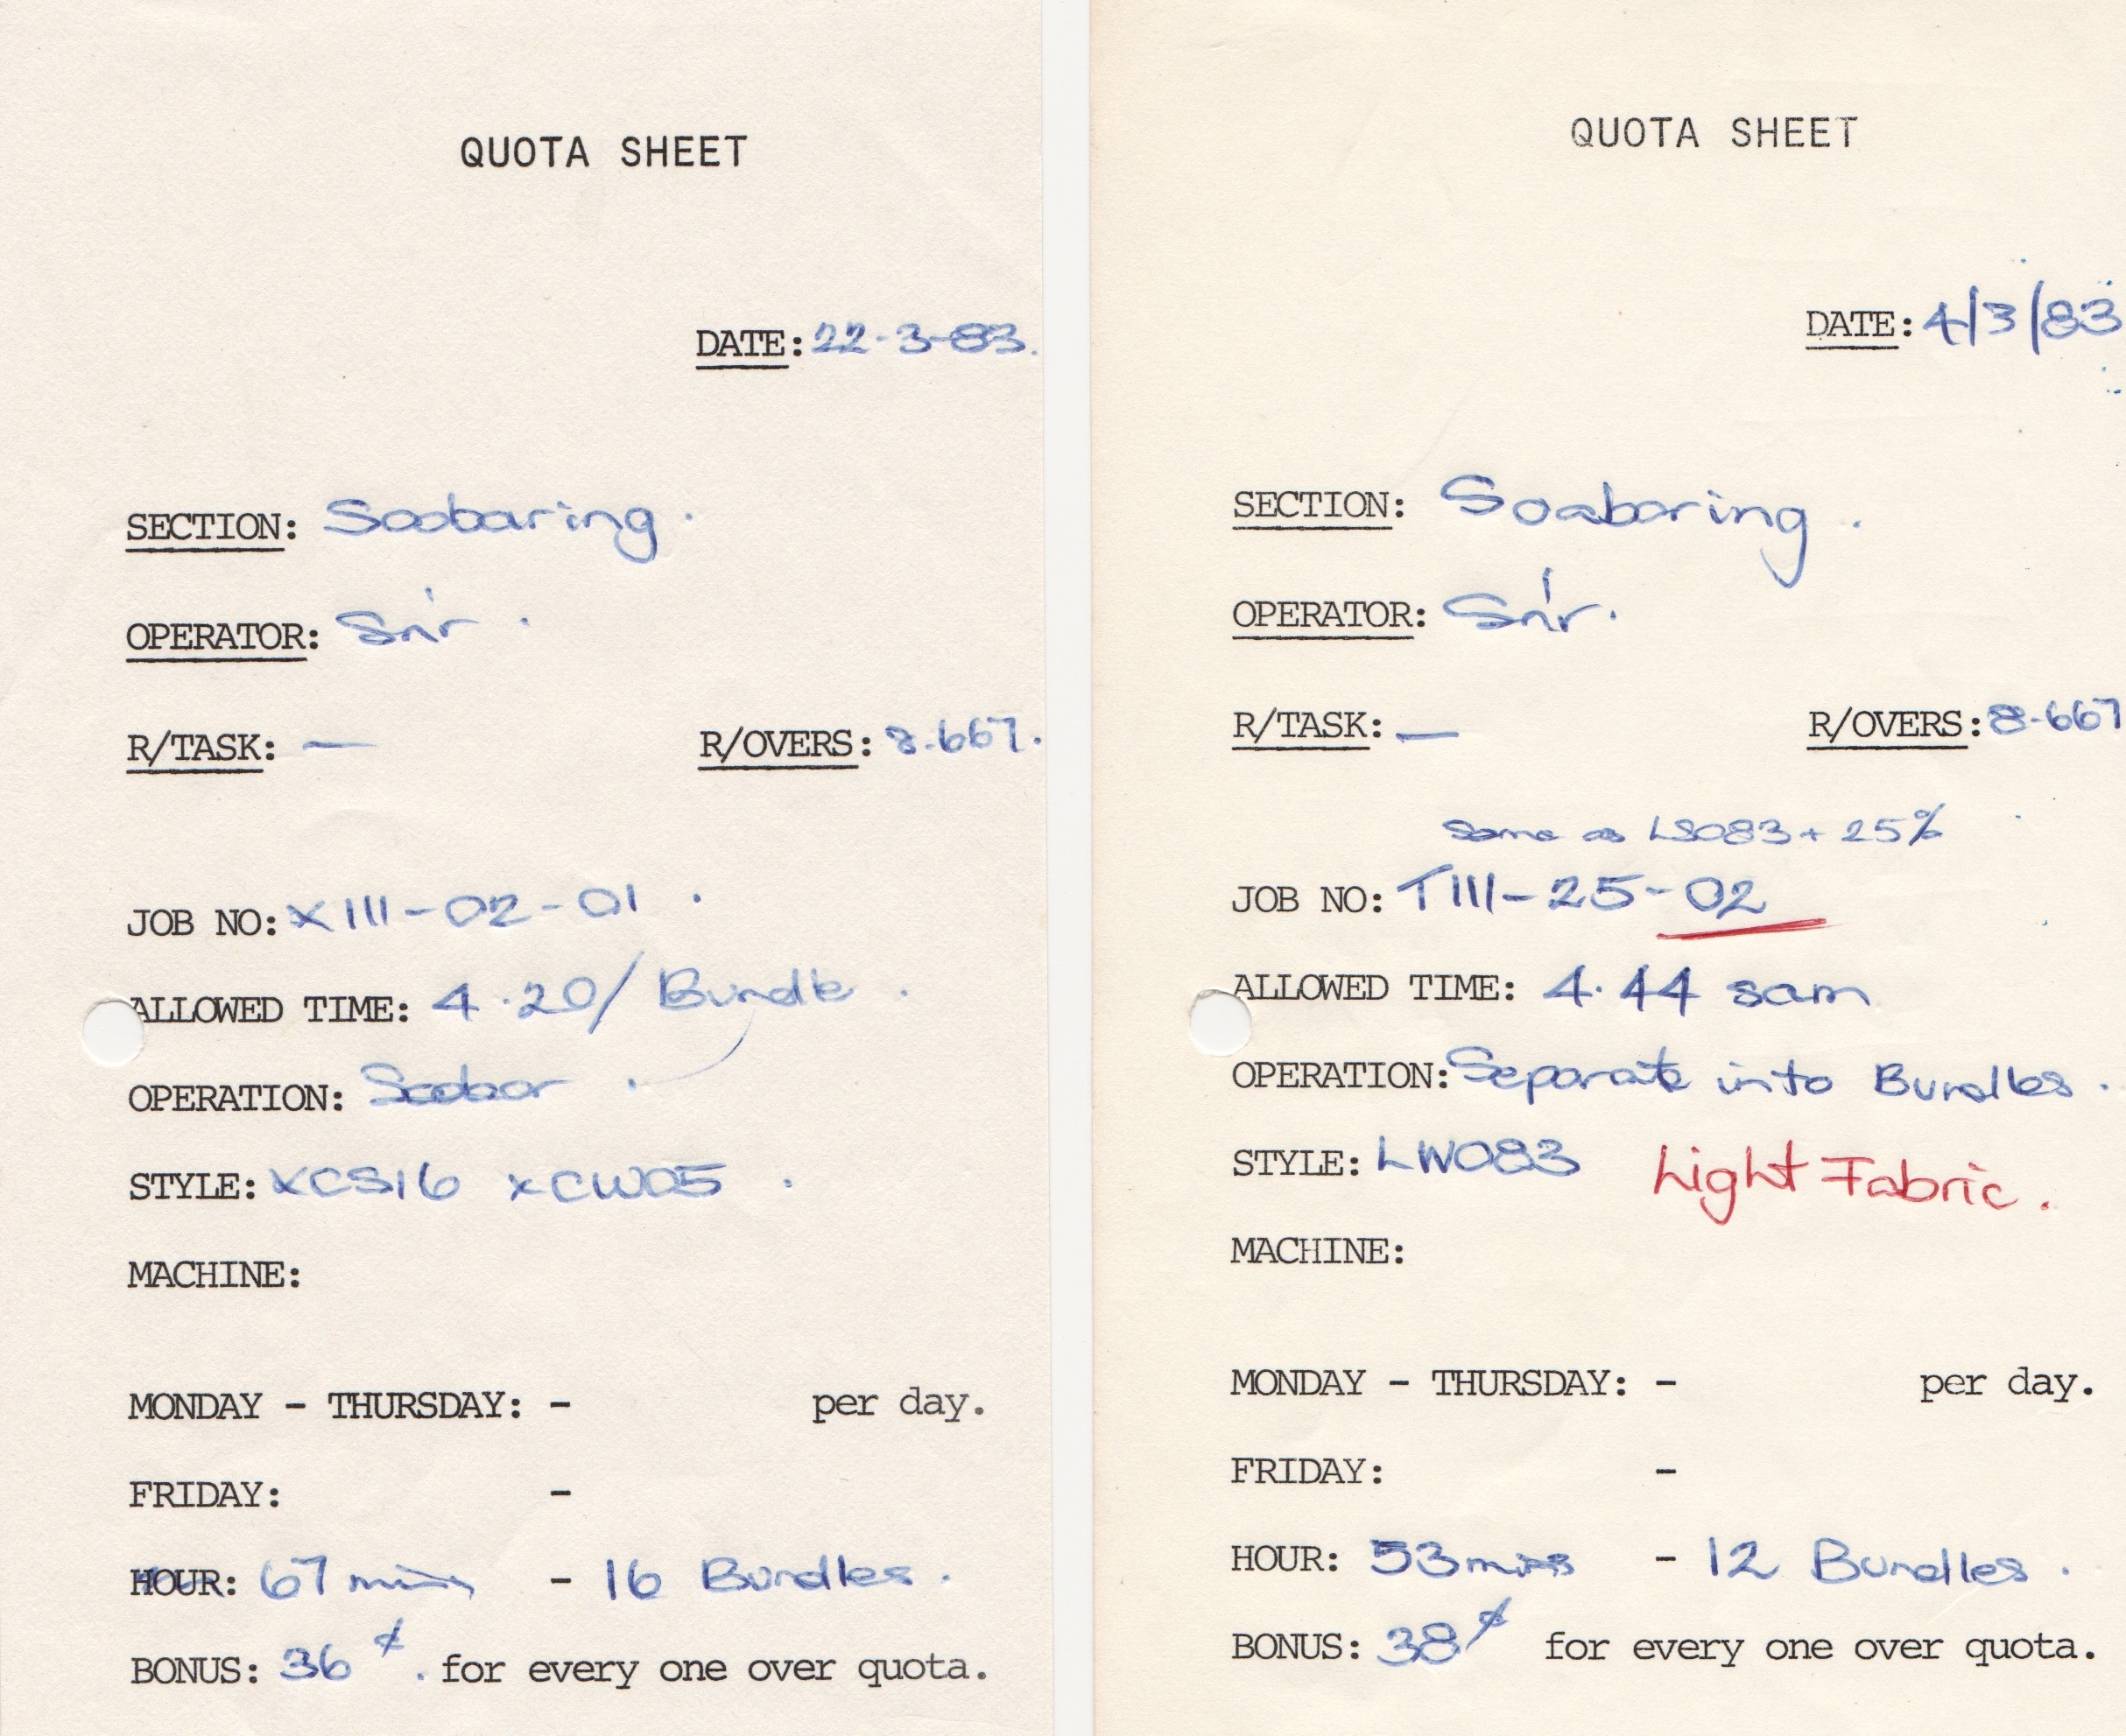 QUOTA SHEET
DATE: 22-3-83.
SECTION: Soabaring.
OPERATOR: Sn'r.
R/TASK: — R/OVERS: 8.667.
JOB NO: X111-02-01.
ALLOWED TIME: 4.20/Bundle.
OPERATION: Soabar.
STYLE: XCS16 XCW05.
MACHINE:
MONDAY - THURSDAY: - per day.
FRIDAY: -
HOUR: 67 mins - 16 Bundles.
BONUS: 36¢. for every one over quota.
QUOTA SHEET
DATE: 4/3/83
SECTION: Soabaring.
OPERATOR: Sn'r.
R/TASK: — R/OVERS: 8.667
Same as LS083 + 25%
JOB NO: T111-25-02
ALLOWED TIME: 4.44 sam
OPERATION: Separate into Bundles.
STYLE: LW083 Light Fabric.
MACHINE:
MONDAY - THURSDAY: - per day.
FRIDAY: -
HOUR: 53 mins - 12 Bundles.
BONUS: 38¢ for every one over quota.